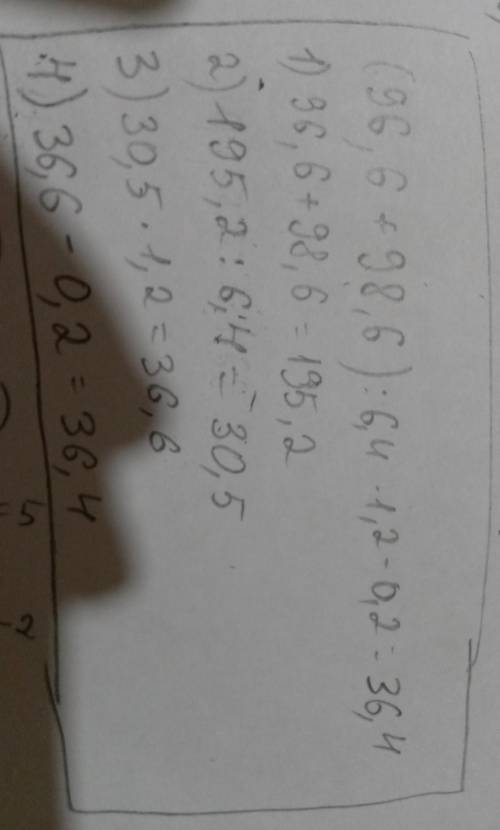 (96,6 + 98,6) : 6,4 · 1,2 - 0,2 = 36,4
1) 96,6 + 98,6 = 195,2
2) 195,2 : 6,4 = 30,5
3) 30,5 · 1,2 = 36,6
4) 36,6 - 0,2 = 36,4